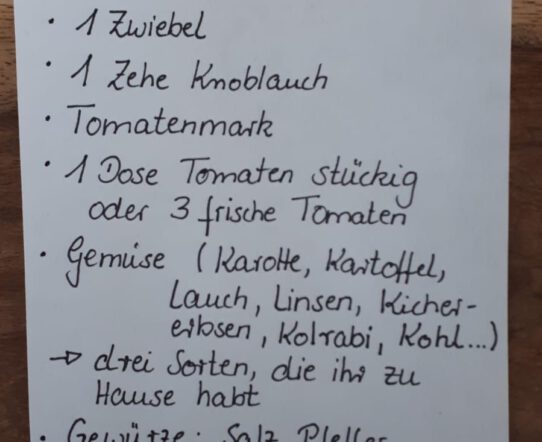 · 1 Zwiebel
· 1 Zehe Knoblauch
· Tomatenmark
· 1 Dose Tomaten stückig
oder 3 frische Tomaten
· Gemüse (Karotte, Kartoffel,
Lauch, Linsen, Kicher-
erbsen, Kolrabi, Kohl...)
→ drei Sorten, die ihr zu
Hause habt
· Gewürze: Salz Pfeffer